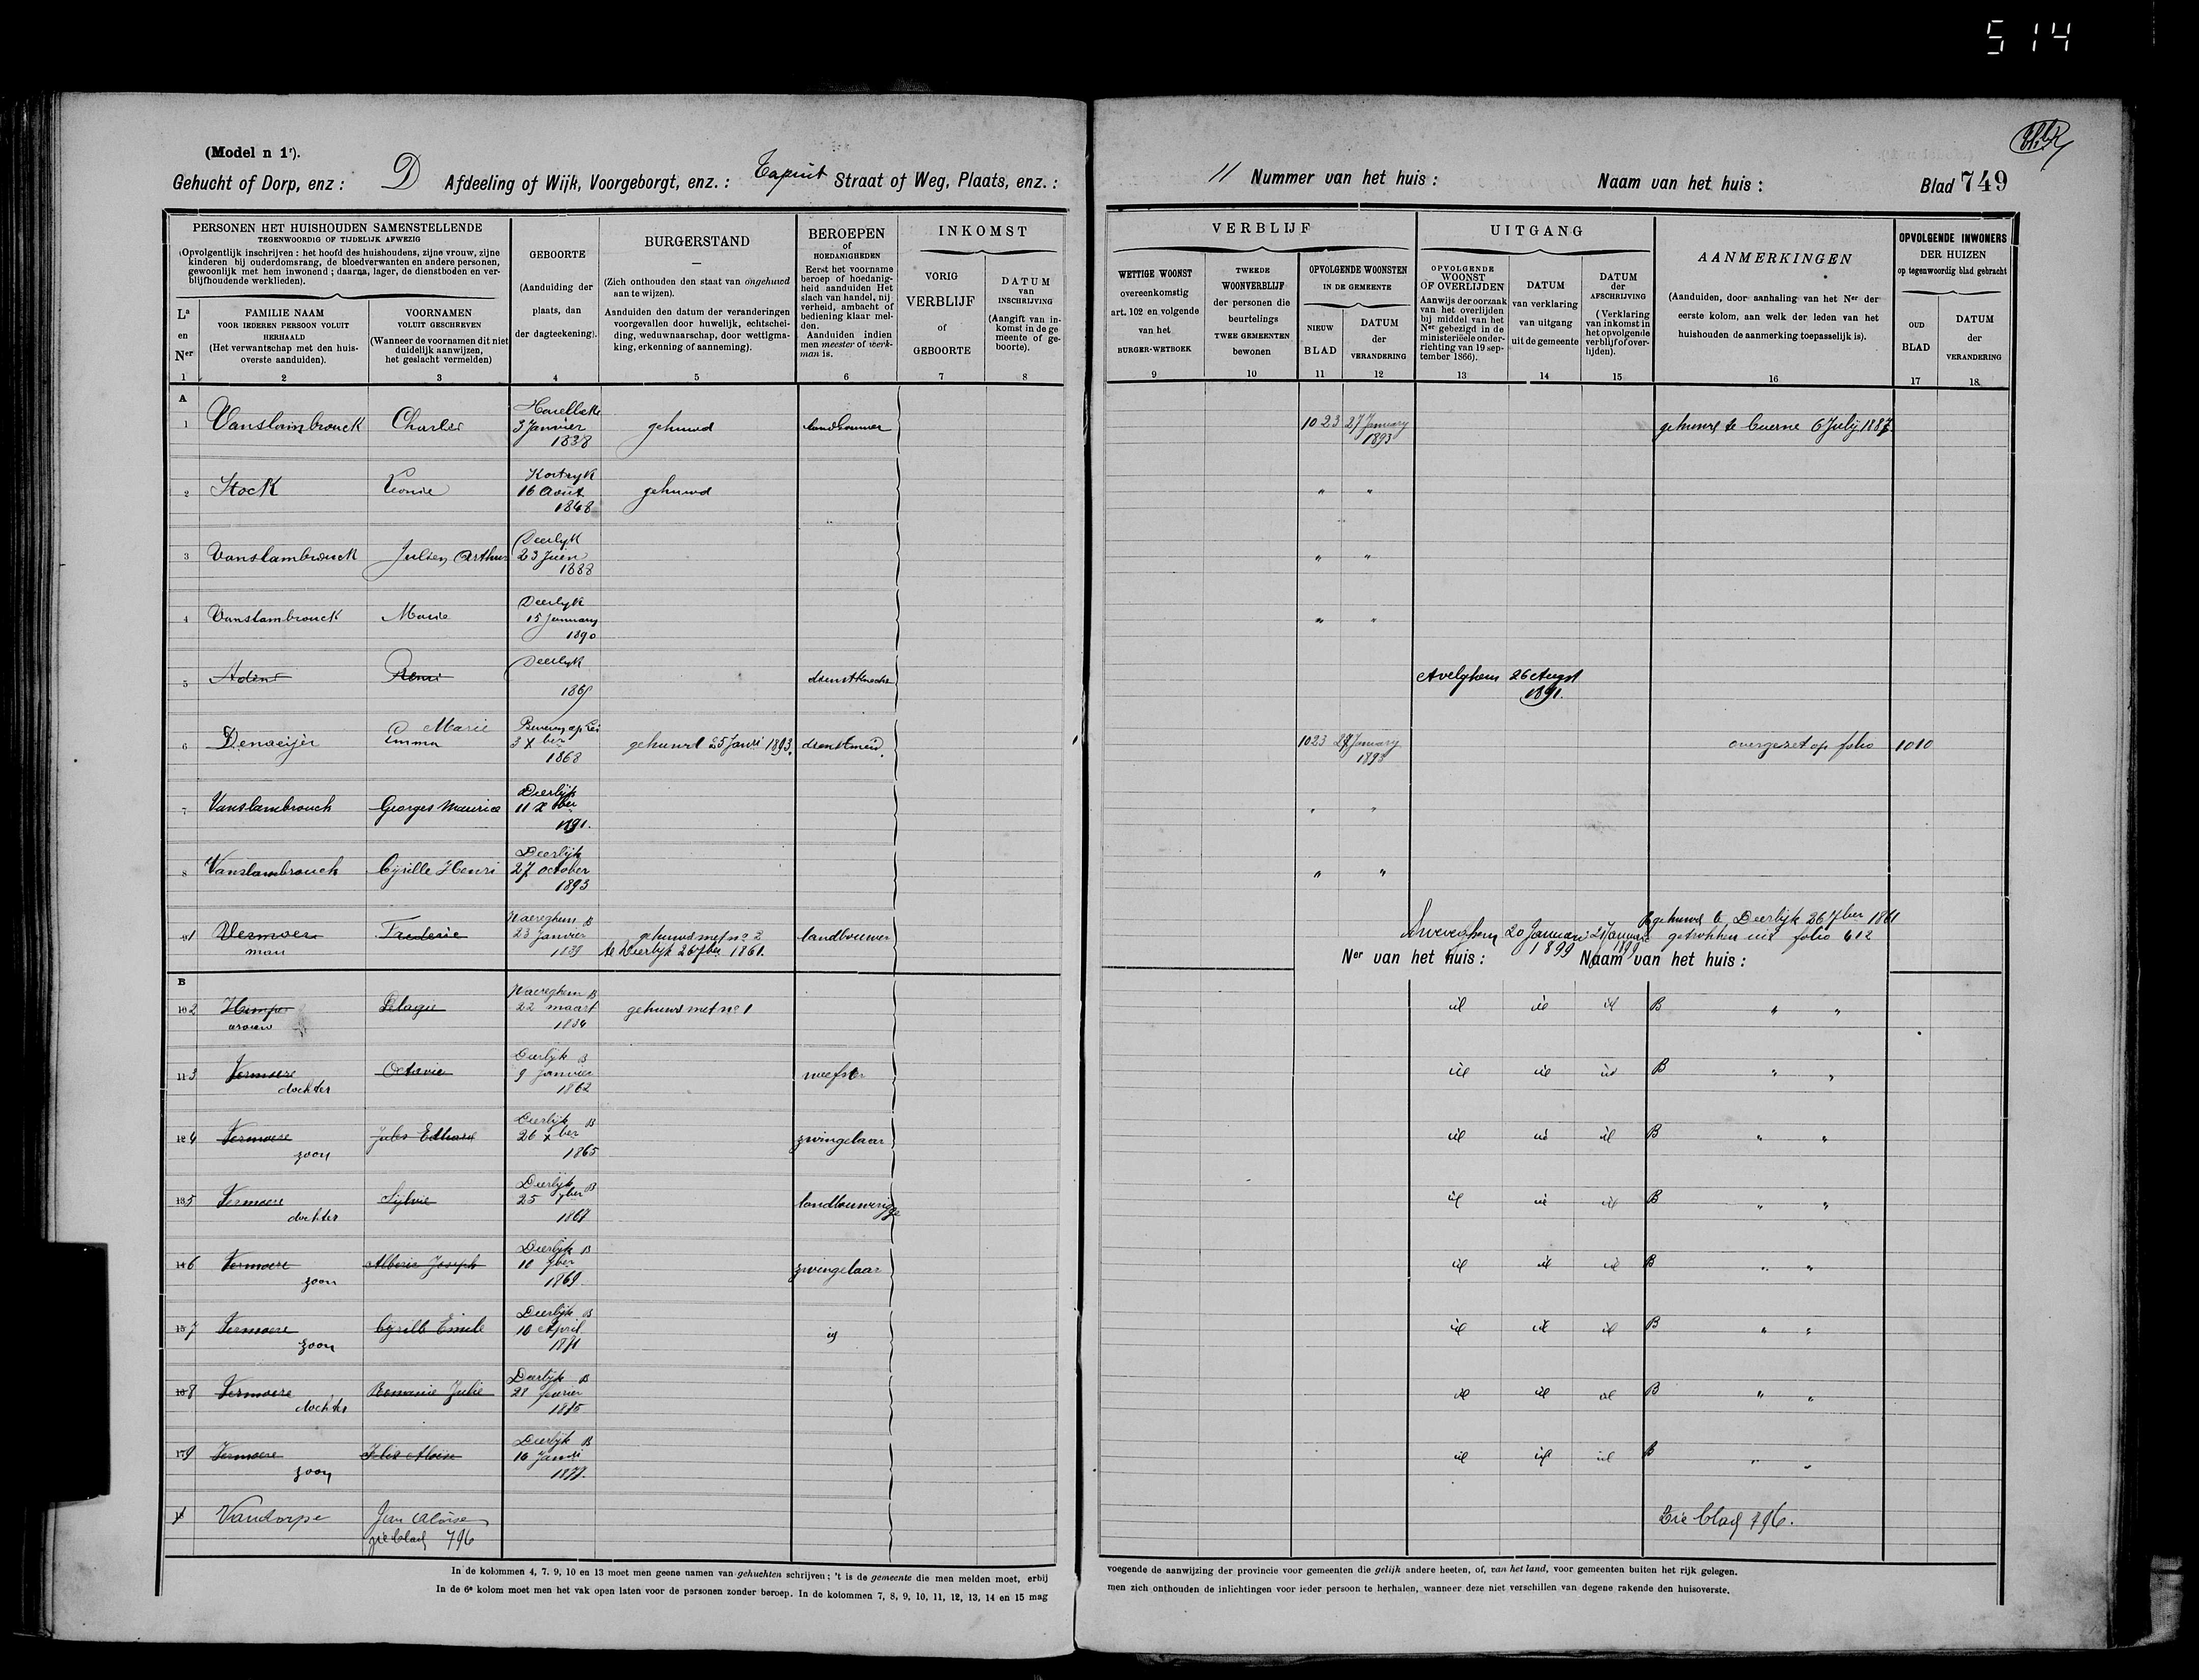 514
(Model n 1r).
Gehucht of Dorp, enz : D Afdeeling of Wijk, Voorgeborgt, enz. : Tapuit Straat of Weg, Plaats, enz. :
11 Nummer van het huis : Naam van het huis : Blad 749
PERSONEN HET HUISHOUDEN SAMENSTELLENDE
TEGENWOORDIG OF TIJDELIJK AFWEZIG
(Opvolgentlijk inschrijven : het hoofd des huishoudens, zijne vrouw, zijne
kinderen bij ouderdomsrang, de bloedverwanten en andere personen,
gewoonlijk met hem inwonend ; daarna, lager, de dienstboden en ver-
blijfhoudende werklieden).
La en Ner
1
FAMILIE NAAM
VOOR IEDEREN PERSOON VOLUIT
HERHAALD
(Het verwantschap met den huis-
overste aanduiden).
2
VOORNAMEN
VOLUIT GESCHREVEN
(Wanneer de voornamen dit niet
duidelijk aanwijzen,
het geslacht vermelden)
3
GEBOORTE
(Aanduiding der
plaats, dan
der dagteekening).
4
BURGERSTAND
(Zich onthouden den staat van ongehuwd
aan te wijzen).
Aanduiden den datum der veranderingen
voorgevallen door huwelijk, echtschei-
ding, weduwnaarschap, door wettigma-
king, erkenning of aanneming).
5
BEROEPEN
of
HOEDANIGHEDEN
Eerst het voorname
beroep of hoedanig-
heid aanduiden Het
slach van handel, nij
verheid, ambacht of
bediening klaar mel-
den.
Aanduiden indien
men meester of werk-
man is.
6
INKOMST
VORIG
VERBLIJF
of
GEBOORTE
7
DATUM
van
INSCHRIJVING
(Aangift van in-
komst in de ge
meente of ge-
boorte).
8
VERBLIJF
WETTIGE WOONST
overeenkomstig
art. 102 en volgende
van het
BURGER-WETBOEK
9
TWEEDE
WOONVERBLIJF
der personen die
beurtelings
TWEE GEMEENTEN
bewonen
10
OPVOLGENDE WOONSTEN
IN DE GEMEENTE
NIEUW
BLAD
11
DATUM
der
VERANDERING
12
UITGANG
OPVOLGENDE
WOONST
OF OVERLIJDEN
Aanwijs der oorzaak
van het overlijden
bij middel van het
Ner gebezigd in de
ministerieële onder-
richting van 19 sep-
tember 1866).
13
DATUM
van verklaring
van uitgang
uit de gemeente
14
DATUM
der
AFSCHRIJVING
(Verklaring
van inkomst in
het opvolgende
verblijf of over-
lijden).
15
AANMERKINGEN
(Aanduiden, door aanhaling van het Ner der
eerste kolom, aan welk der leden van het
huishouden de aanmerking toepasselijk is).
16
OPVOLGENDE INWONERS
DER HUIZEN
op tegenwoordig blad gebracht
OUD
BLAD
17
DATUM
der
VERANDERING
18
A
1 Vanslambrouck Charles Harelbeke 3 Janvier 1838 gehuwd landbouwer 1023 27 January 1893 gehuwd te Cuerne 6 July 1887
2 Stock Leonie Kortryk 16 Août 1848 gehuwd " "
3 Vanslambrouck Julien Arthur Deerlyk 23 Juin 1888 " "
4 Vanslambrouck Marie Deerlyk 15 January 1890 " "
5 Remi Deerlyk dienstknecht Avelghem 26 Augst 1891.
6 Marie Emma 3 Xber 1868 gehuwd 25 Janri 1893. dienstmeid. 1023 27 January 1893 overgezet op folio 1010
7 Vanslambrouck Georges Maurice Deerlijk 11 Xber 1891. " "
8 Vanslambrouck Cyrille Henri Deerlijk 27 october 1893 " "
9 1 Vermoere man Frederic Waereghem B 23 Janvier 1839 gehuwd met no 2 te Deerlijk 26 7ber 1861. landbouwer 20 Januari 1899 21 Januari 1899 gehuwd te Deerlijk 26 7ber 1861 getrokken uit folio 612
B
Ner van het huis : Naam van het huis :
10 2 vrouw Pelagie Waereghem B 22 maart 1834 gehuwd met no 1 id id id B " "
11 3 Vermoere dochter Octavie Deerlijk B 9 Janvier 1862 weefster id id id B " "
12 4 Vermoere zoon Jules Edhard Deerlijk B 26 Xber 1865 zwingelaar id id id B " "
13 5 Vermoere dochter Sylvie Deerlijk B 25 7ber 1867 landbouwerigge id id id B " "
14 6 Vermoere zoon Alberic Joseph Deerlijk B 10 7ber 1869 zwingelaar id id id B " "
15 7 Vermoere zoon Cyrille Emile Deerlijk B 10 April 1871 id id id id B " "
16 8 Vermoere dochter Romanie Julie Deerlijk B 21 fevrier 1875 id id id B " "
17 9 Vermoere zoon Aloise Deerlijk B 16 Janri 1877 id id id B " "
Vandorpe Jean Aloïse zie blad 796 Zie blad 796.
In de kolommen 4, 7. 9, 10 en 13 moet men geene namen van gehuchten schrijven ; 't is de gemeente die men melden moet, erbij
In de 6e kolom moet men het vak open laten voor de personen zonder beroep. In de kolommen 7, 8, 9, 10, 11, 12, 13, 14 en 15 mag
voegende de aanwijzing der provincie voor gemeenten die gelijk andere heeten, of, van het land, voor gemeenten buiten het rijk gelegen.
men zich onthouden de inlichtingen voor ieder persoon te herhalen, wanneer deze niet verschillen van degene rakende den huisoverste.